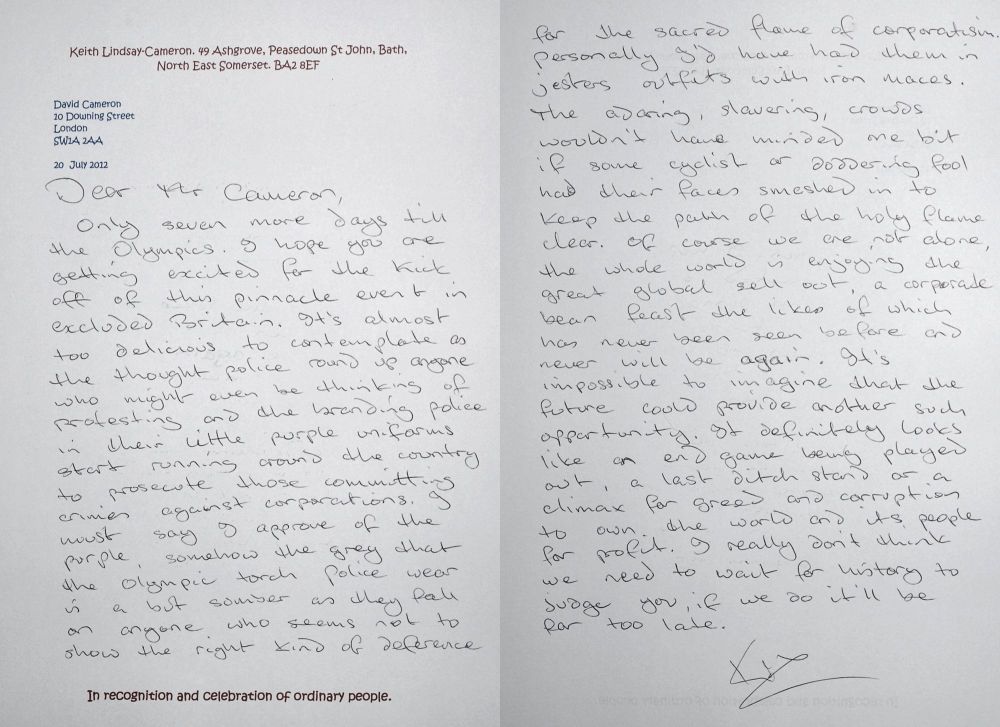 Keith Lindsay-Cameron. 49 Ashgrove, Peasedown St John, Bath,
North East Somerset. BA2 8EF
David Cameron
10 Downing Street
London
SW1A 2AA
20 July 2012
Dear Mr Cameron,
Only seven more days till
the Olympics. I hope you are
getting excited for the kick
off of this pinnacle event in
excluded Britain. It's almost
too delicious to contemplate as
the thought police round up anyone
who might even be thinking of
protesting and the branding police
in their little purple uniforms
start running around the country
to prosecute those committing
crimes against corporations. I
must say I approve of the
purple, somehow the grey that
the Olympic torch police wear
is a but somber as they fall
on anyone who seems not to
show the right kind of deference
In recognition and celebration of ordinary people.
for the sacred flame of corporatism.
Personally I'd have had them in
jesters outfits with iron maces.
The adoring, slavering, crowds
wouldn't have minded one bit
if some cyclist or doddering fool
had their faces smashed in to
keep the path of the holy flame
clear. Of course we are not alone,
the whole world is enjoying the
great global sell out, a corporate
bean feast the likes of which
has never been seen before and
never will be again. It's
impossible to imagine that the
future could provide another such
opportunity. It definitely looks
like an end game being played
out, a last ditch stand or a
climax for greed and corruption
to own the world and its people
for profit. I really don't think
we need to wait for history to
judge you, if we do it'll be
far too late.